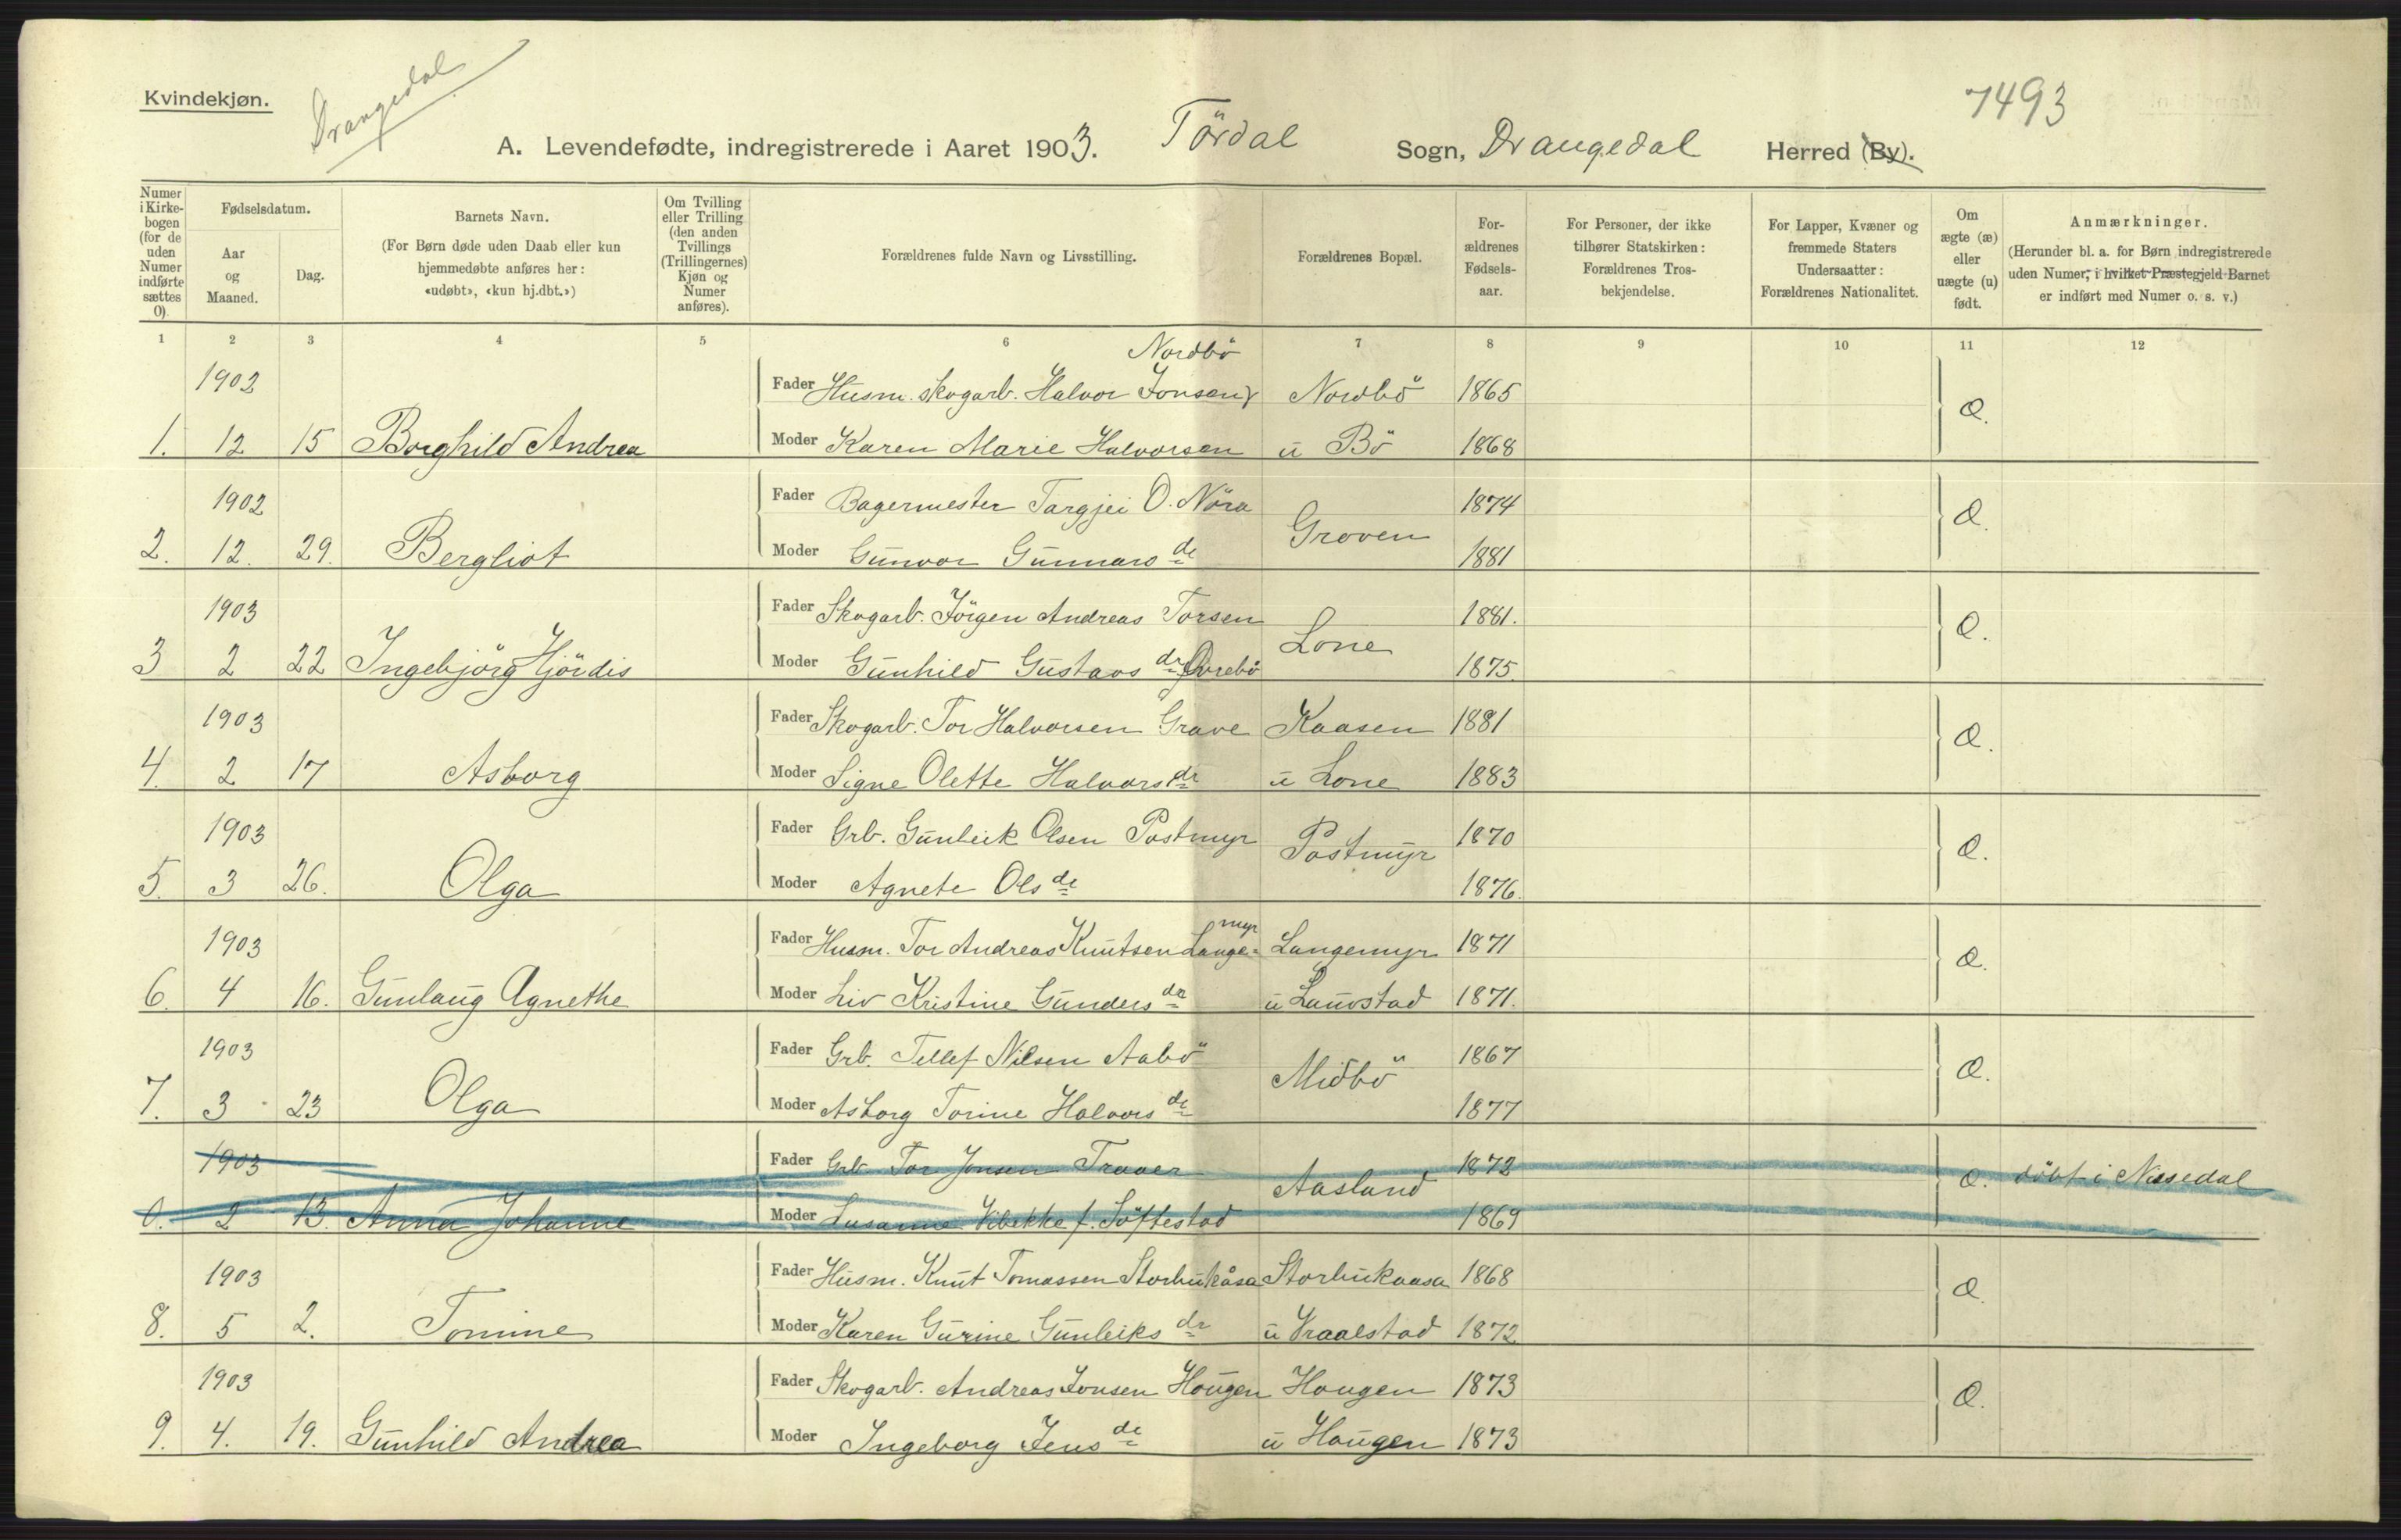 Kvindekjøn.
Drangedal
7493
A. Levendefødte, indregistrerede i Aaret 1903. Tördal Sogn, Drangedal Herred (By).
Numer i Kirkebogen (for de uden Numer indførte sættes 0)
Fødselsdatum.
Aar og Maaned.
Dag.
Barnets Navn.
(For Børn døde uden Daab eller kun hjemmedøbte anføres her: «udøbt», «kun hj.dbt.»)
Om Tvilling eller Trilling (den anden Tvillings (Trillingernes) Kjøn og Numer anføres).
Forældrenes fulde Navn og Livsstilling.
Forældrenes Bopæl.
Forældrenes Fødselsaar.
For Personer, der ikke tilhører Statskirken: Forældrenes Trosbekjendelse.
For Lapper, Kvæner og fremmede Staters Undersaatter: Forældrenes Nationalitet.
Om ægte (æ) eller uægte (u) født.
Anmærkninger.
(Herunder bl. a. for Børn indregistrerede uden Numer, i hvilket Præstegjeld Barnet er indført med Numer o. s. v.)
1 2 3 4 5 6 7 8 9 10 11 12
Nordbö
1902 Fader Husm. skogarb. Halvor Jonsen Nordbö 1865
1. 12 15 Borghild Andrea Moder Karen Marie Halvorsen u Bö 1868 æ.
1902 Fader Bagermester Targjei O. Nöra Groven 1874
2. 12. 29. Bergliot Moder Gunvor Gunnars dr 1881 æ.
1903 Fader Skogarb. Jörgen Andreas Torsen Lone 1881.
3 2 22 Ingebjörg Hjördis Moder Gunhild Gustavs dr Övrebö 1875. æ.
1903 Fader Skogarb. Tor Halvorsen Grave Kaasen 1881
4. 2 17 Asborg Moder Signe Olette Halvors dr u Lone 1883 æ.
1903 Fader Grb. Gunleik Olsen Postmyr Postmyr 1870
5. 3 26. Olga Moder Agnete Ols dr 1876. æ.
1903 Fader Husm. Tor Andreas Knutsen Lange=myr Langemyr 1871
6. 4 16. Gunlaug Agnethe Moder Liv Kristine Gunders dr u Lauvstad 1871. æ.
1903 Fader Grb. Tellef Nilsen Aabö Midbö 1867
7. 3 23 Olga Moder Asborg Torine Halvors dr 1877 æ.
1903 Fader Grb. Tor Jonsen Traaer Aasland 1872
0. 2 13. Anna Johanne Moder Susanne Vibekke f. Töftestad 1869 æ. döbt i Nissedal
1903 Fader Husm. Knut Tomassen Storbukåsa Storbukaasa 1868
8. 5 2. Tomine Moder Karen Gurine Gunleiks dr u Vraalstad 1872 æ.
1903 Fader Skogarb. Andreas Jonsen Hougen Hougen 1873
9. 4. 19. Gunhild Andrea Moder Ingeborg Jens dr u Hougen 1873 æ.